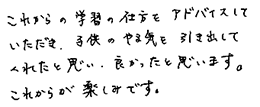 これからの学習の仕方をアドバイスして
いただき、子供のやる気を引き出して
くれたと思い、良かったと思います。
これからが楽しみです。